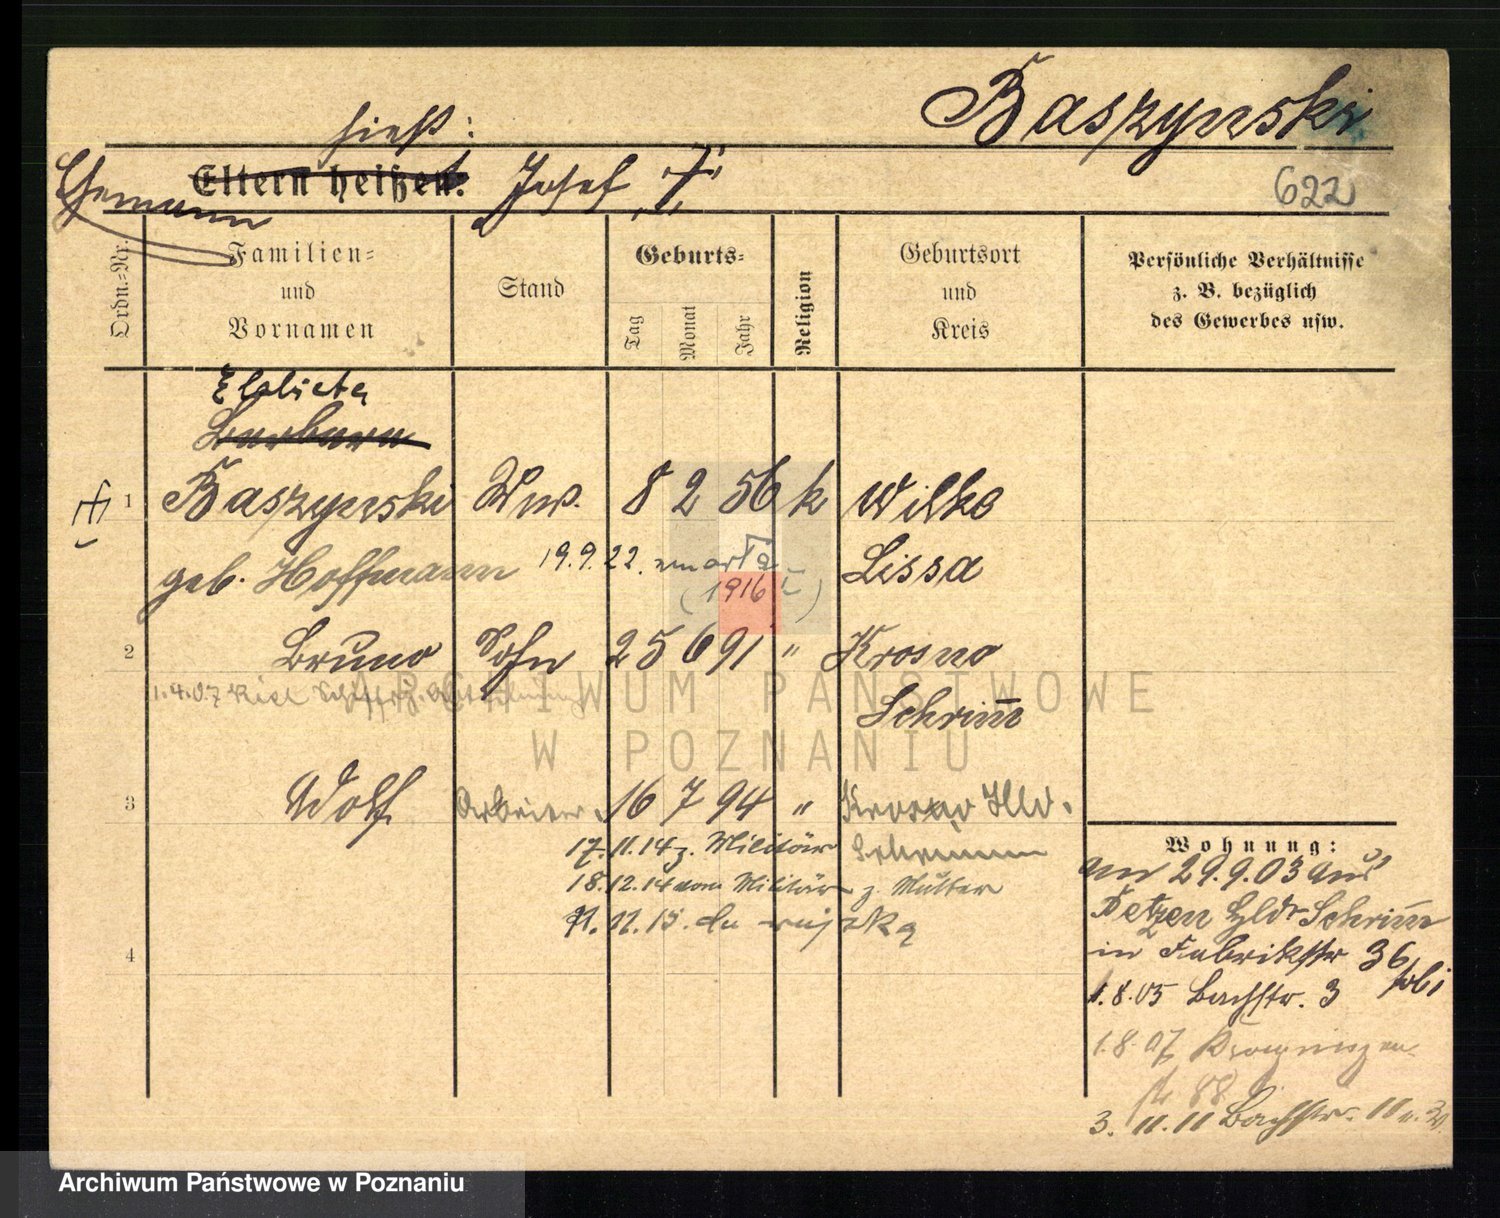 Baszynski
hieß:
Ehemann Eltern heißen: Josef
622
Ordn.-Nr.
Familien-
und
Vornamen
Stand
Geburts-
Tag
Monat
Jahr
Religion
Geburtsort
und
Kreis
Persönliche Verhältnisse
z. B. bezüglich
des Gewerbes usw.
Elzbieta
Barbara
1 Baszynski Ww. 8 2 56 k Wilke
geb. Hoffmann 19.9.22. umarła Lissa
(1916 )
2 Bruno Sohn 25 6 91 " Krosno
1.4.07 Kiel
Schrimm
3 Adolf Arbeiter. 16 7 94 " Krosno Hld.
17.11.14 z. Militär Schrimm
18.12.14 vom Militär z. Mutter
11.15. do wojska
4
Wohnung:
am 29.9.03 aus
Hldr Schrimm
in Fabrikstr 36
1.8.05 Bachstr. 3
1.8.07 Kronprinzen
str 88
3. 11. 11 Bachstr. 11
ARCHIWUM PAŃSTWOWE
W POZNANIU
Archiwum Państwowe w Poznaniu